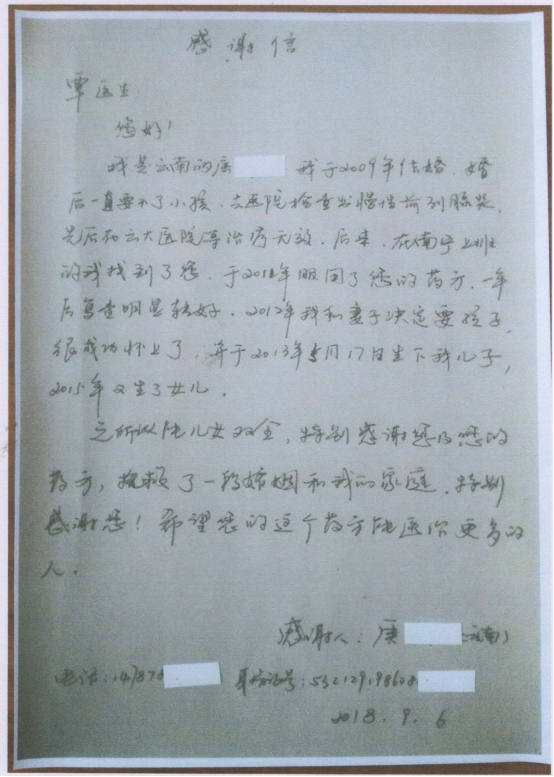 感谢信
覃医生
您好！
我是云南的 我于2009年结婚,婚
后一直要不了小孩,去医院检查出慢性前列腺炎,
先后 大医院 治疗无效.后来,在南宁上班
的我找到了您,于2011年服用了您的药方,一年
后复查明显转好.2012年我和妻子决定要孩子,
很成功怀上了,并于2013年5月17日生下我儿子,
2015年又生了女儿.
之所以能儿女双全,特别感谢您及您的
药方,挽救了一段婚姻和我的家庭.特别
感谢您！希望您的这个药方能医治更多的
人.
感谢人: 云南)
电话:14787 身份证号:532129198608
2018.9.6